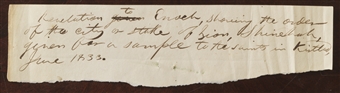 Revelation to Enoch, showing the order
of the city or stake of Zion, Shinehah
given for a sample to the saints in Kirtland
June 1833.